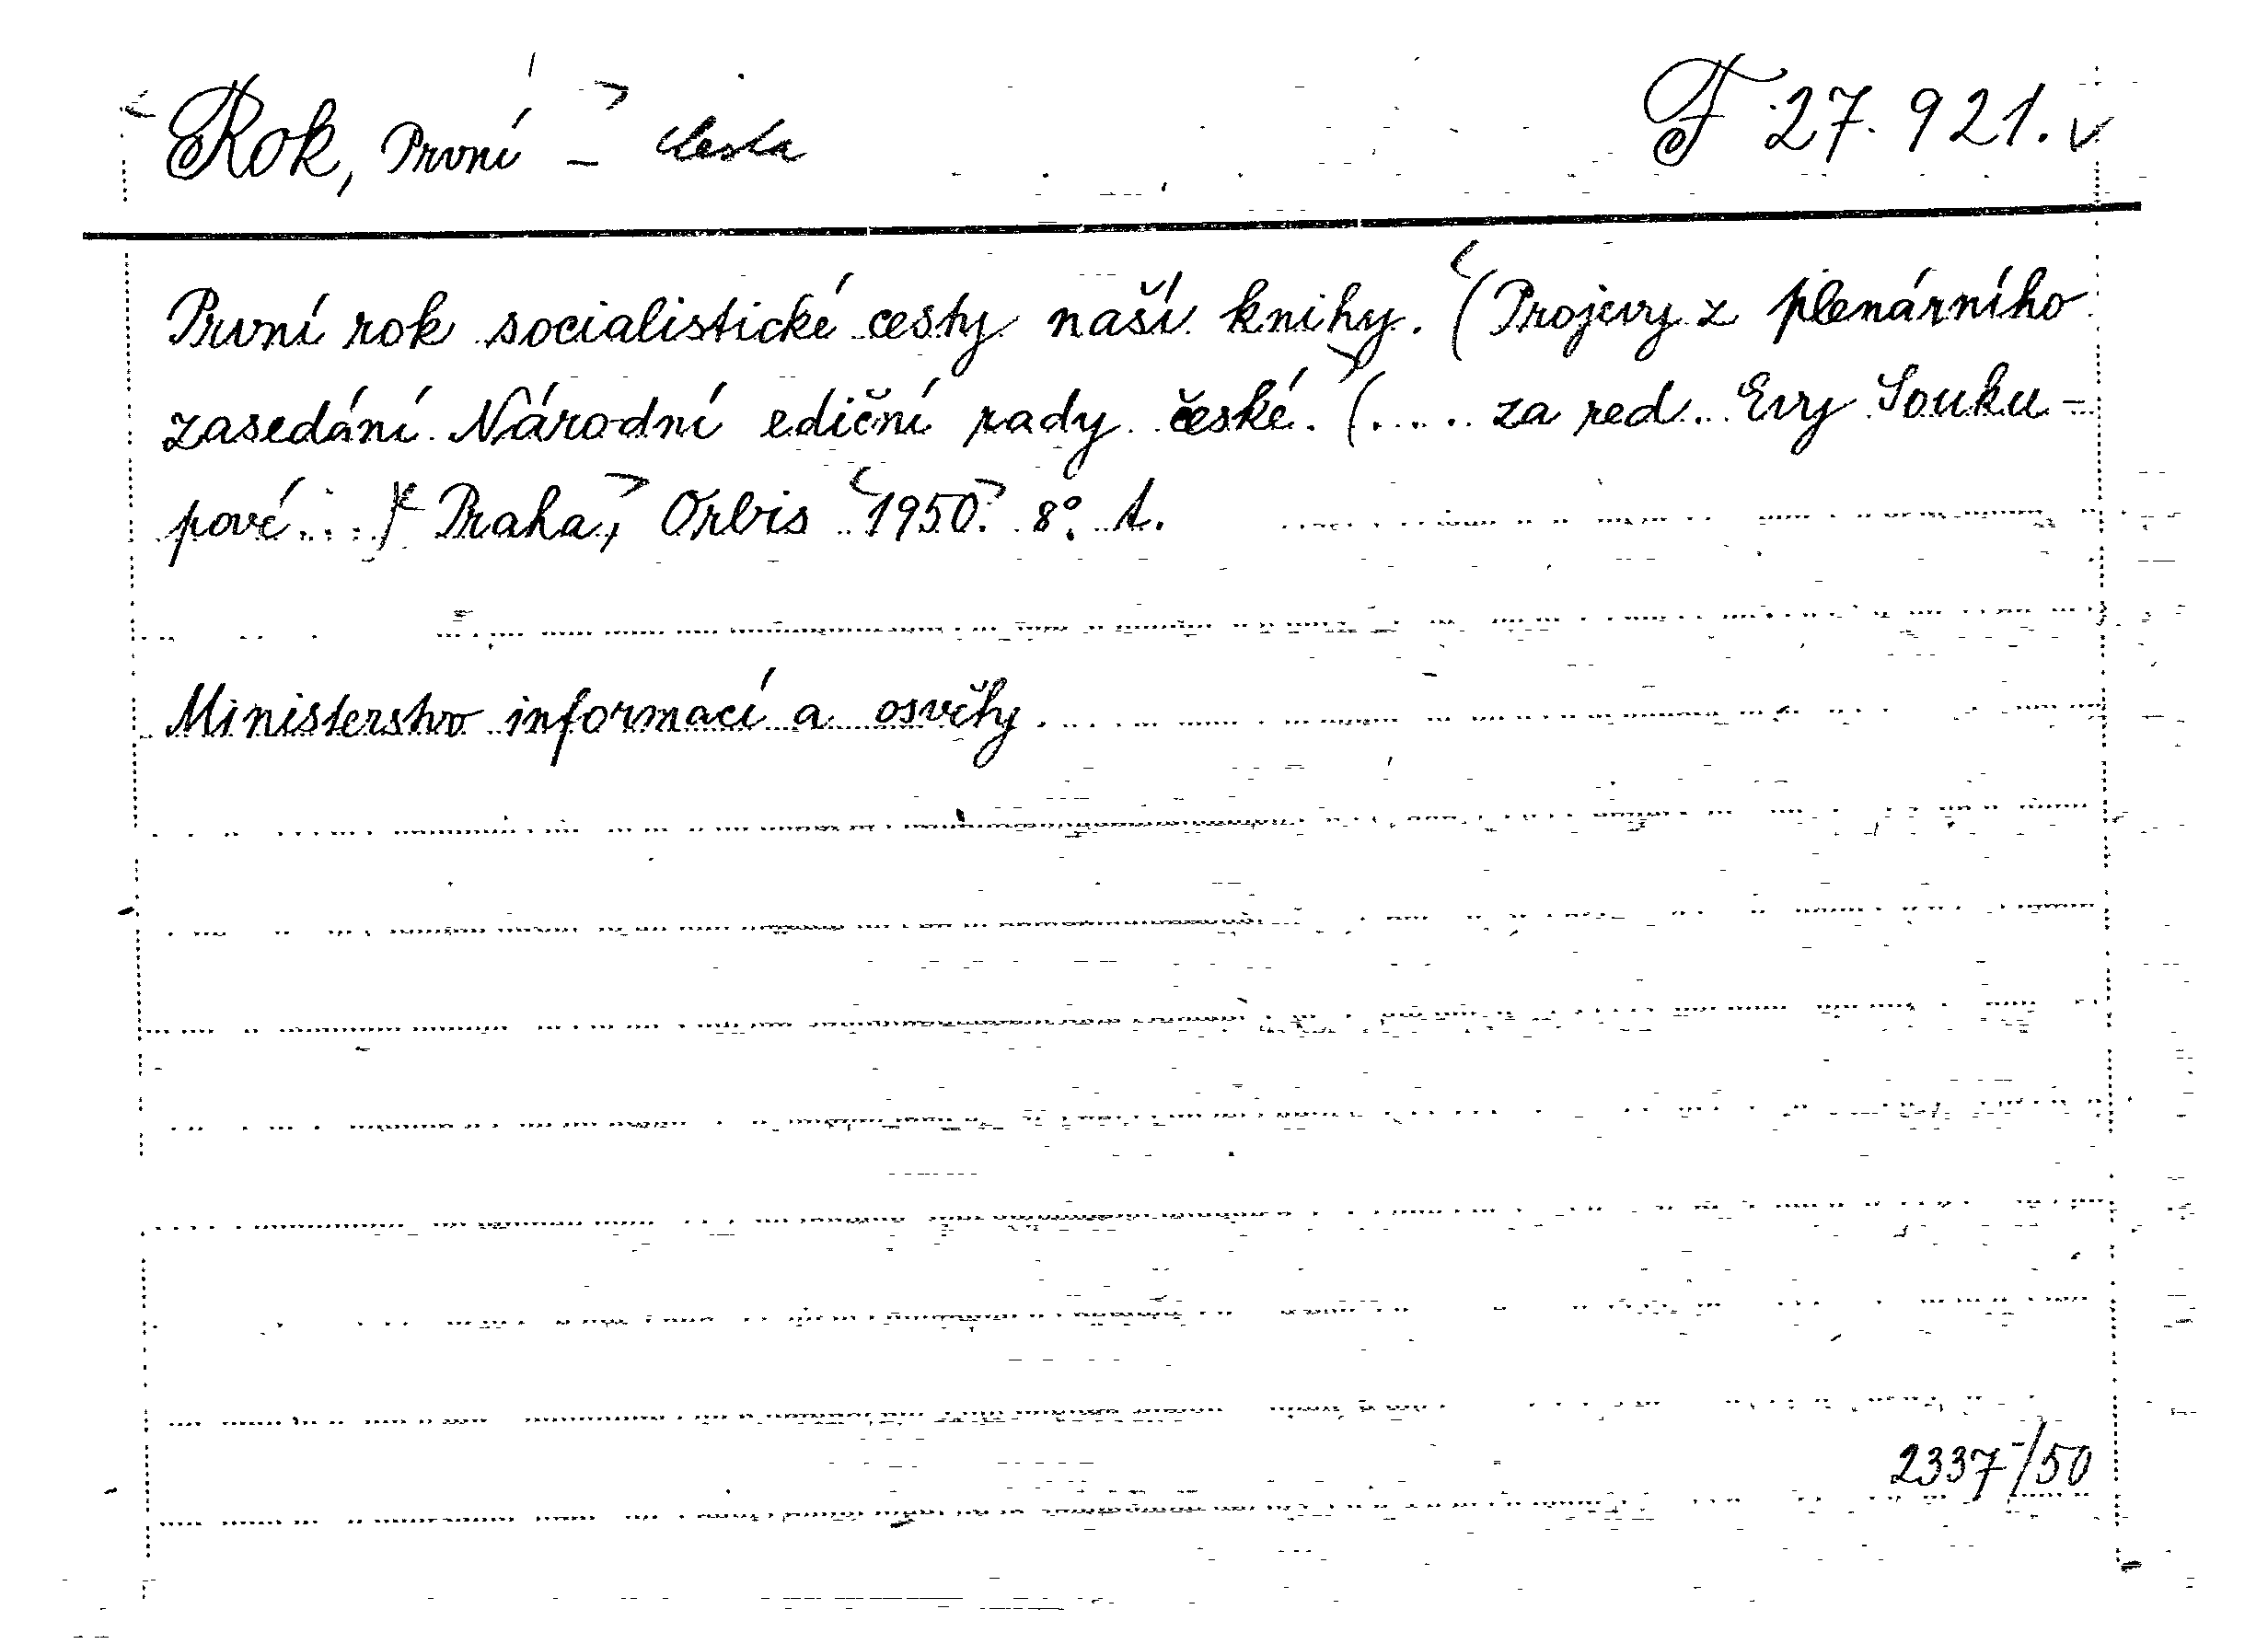 Rok, První – cesta F 27.921.
První rok socialistické cesty naší knihy. (Projevy z plenárního
zasedání Národní ediční rady české. (..... za red. Evy Souku-
pové ...) Praha, Orbis 1950. 8°. A.
Ministerstvo informací a osvěty.
2337/50